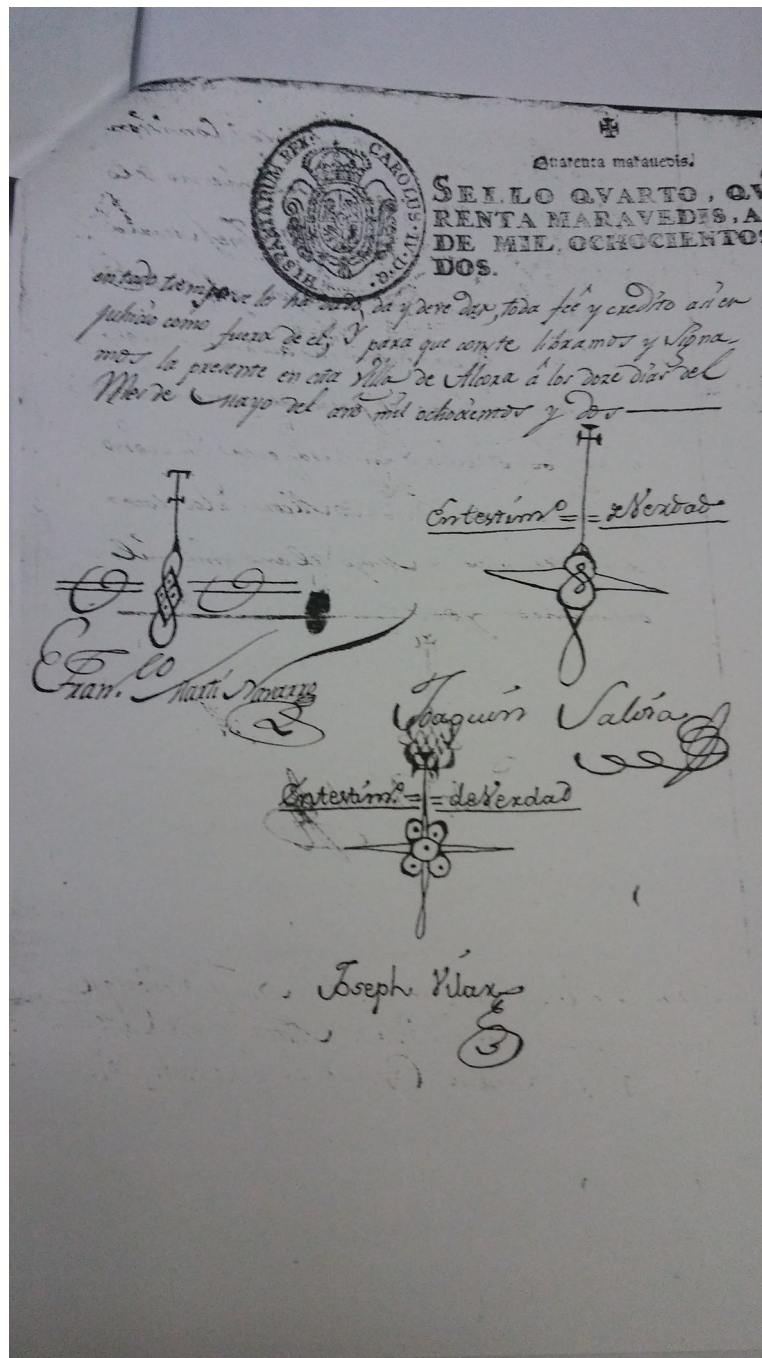 Quarenta maravedis.
HISPANIARUM REX. CAROLUS. IV. D. G.
SELLO QVARTO, QV
RENTA MARAVEDIS, A
DE MIL OCHOCIENTOS
DOS.
en todo tiempo se les ha dado, dá y deve dar, toda feé y credito asi en
juhicio como fuera de el; Y para que conste libramos y Signa-
mos la presente en esta Villa de Alcora â los doze dias del
Mes de Mayo del año mil ochocientos y dos
En testimº = = de Verdad
Franco Martí Navarro
Joaquin Salvia
En testimº = = de Verdad
Joseph Vilar